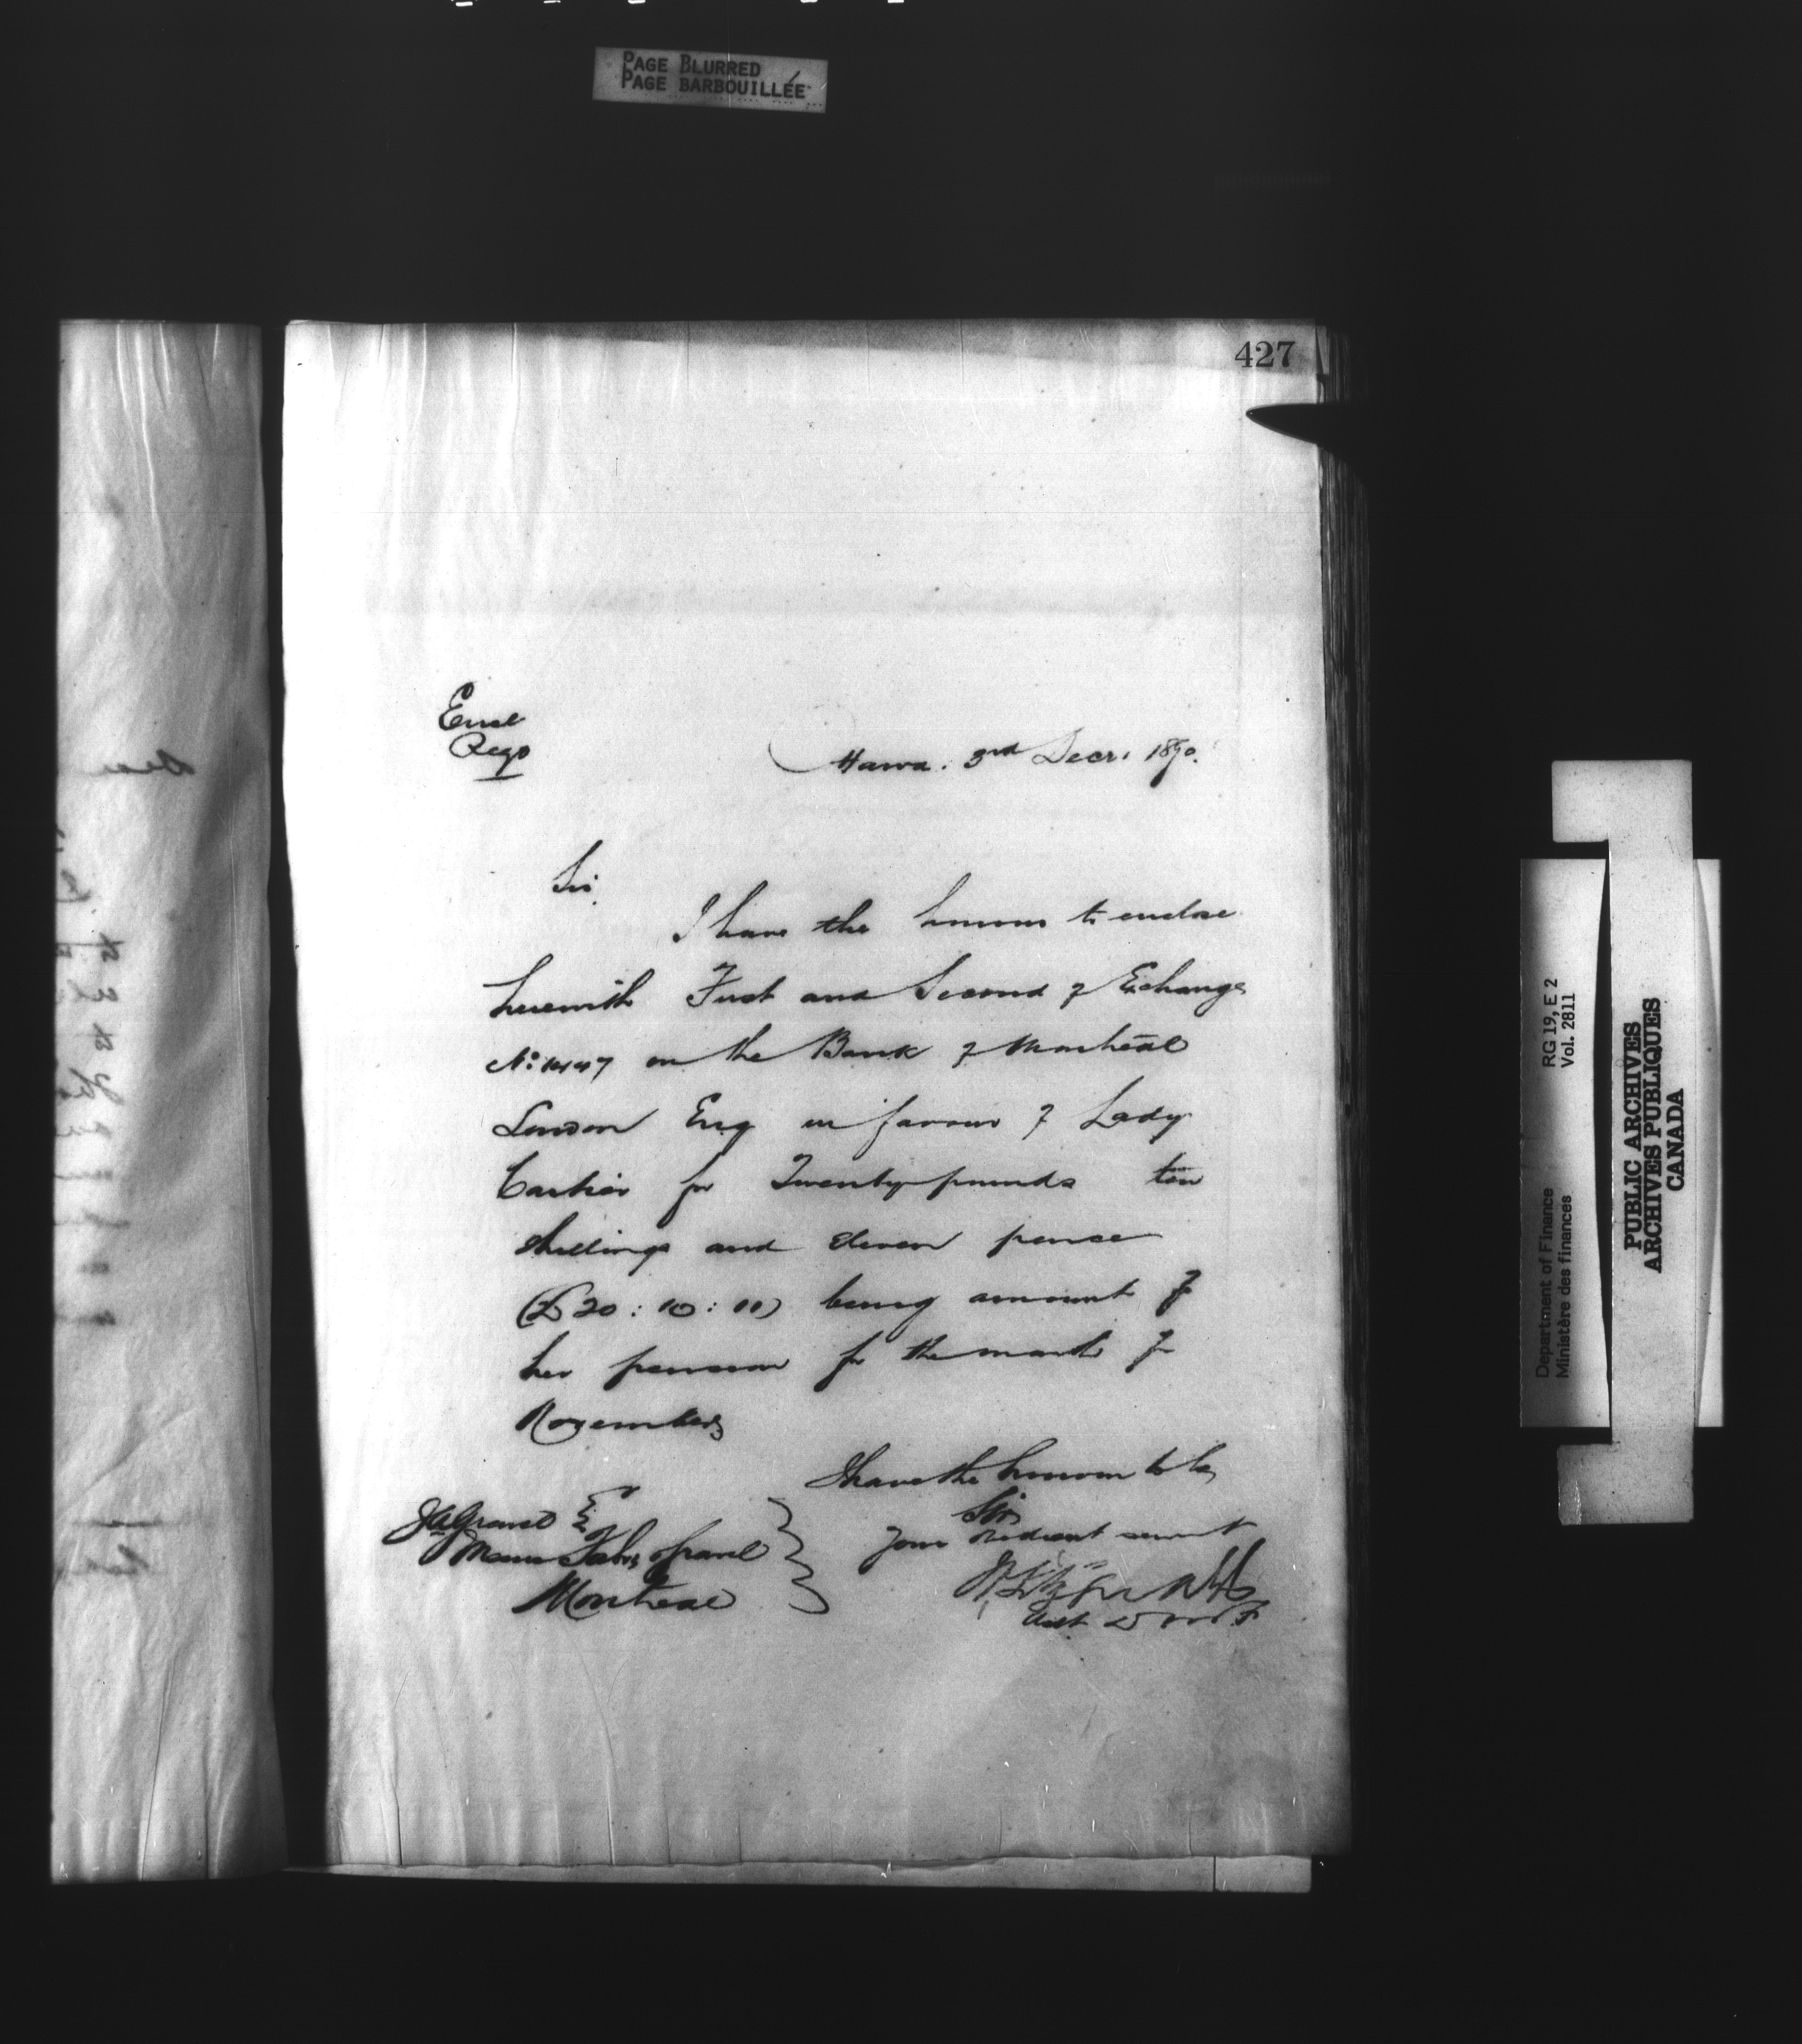 PAGE BLURRED
PAGE BARBOUILLÉE
427
Encl
Regd
Ottawa. 3rd Decr. 1890.
Sir.
I have the honour to enclose
herewith First and Second of Exchange
No: on the Bank of Montreal
London Eng in favour of Lady
Cartier for Twenty pounds ten
shillings and eleven pence
(£20:10:11) being amount of
her pension for the month of
November
I have the honour to be
Sir
Your obedient servant
Grant
Montreal
Asst
Department of Finance RG 19, E 2
Ministère des finances Vol. 2811
PUBLIC ARCHIVES
ARCHIVES PUBLIQUES
CANADA